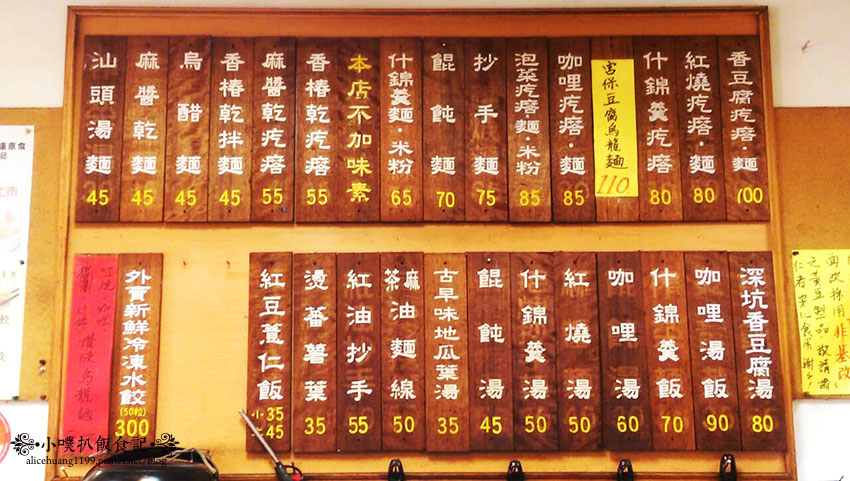 香豆腐疙瘩·麵 100
紅燒疙瘩·麵 80
什錦羹疙瘩 80
宮保豆腐烏龍麵 110
咖哩疙瘩·麵 85
泡菜疙瘩·麵·米粉 85
抄手麵 75
餛飩麵 70
什錦羹麵·米粉 65
本店不加味素
香椿乾疙瘩 55
麻醬乾疙瘩 55
香椿乾拌麵 45
烏醋麵 45
麻醬乾麵 45
汕頭湯麵 45
深坑香豆腐湯 80
咖哩湯飯 90
什錦羹飯 70
咖哩湯 60
紅燒湯 50
什錦羹湯 50
餛飩湯 45
古早味地瓜葉湯 35
麻 茶 油麵線 50
紅油抄手 55
燙蕃薯葉 35
紅豆薏仁飯 小35 45
外賣新鮮冷凍水餃 (50粒) 300
採用非基改
之黃豆製品 敬請
小噗扒飯食記
alicehuang1199.pixnet.net/blog